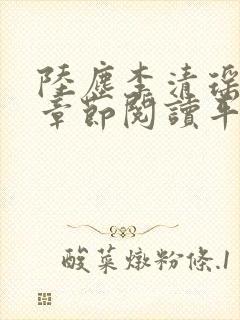 陸塵李清瑤
章節閱讀平
酸菜燉粉條.1